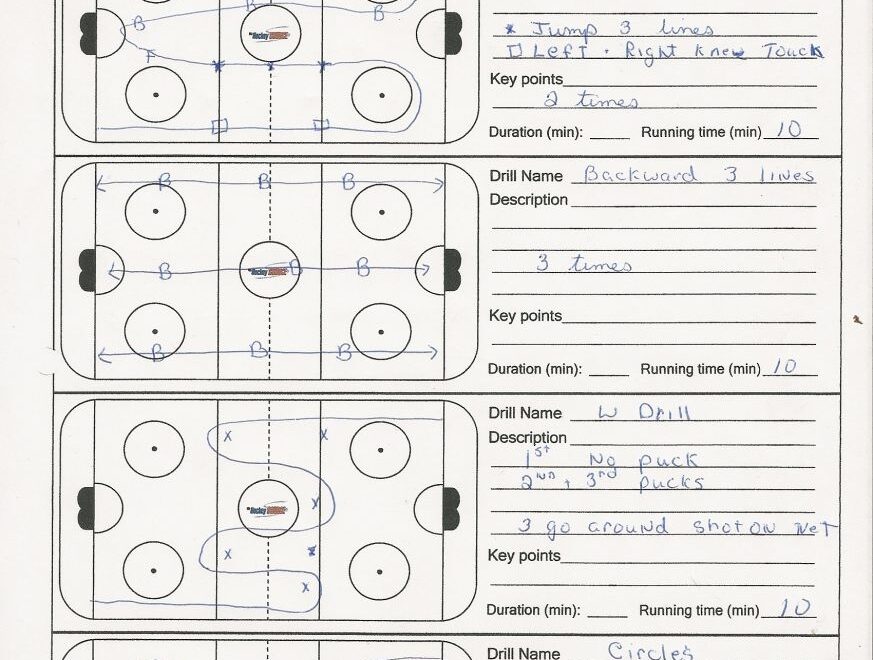 B
B
B
F
* Jump 3 lines
Left . Right knee Touch
Key points
2 times
Duration (min): Running time (min) 10
B B B
B B B
B B B
Drill Name Backward 3 lines
Description
3 times
Key points
Duration (min): Running time (min) 10
x x
x
x x
x
Drill Name W Drill
Description
1st No puck
2nd + 3rd pucks
3 go around shot on Net
Key points
Duration (min): Running time (min) 10
Drill Name Circles